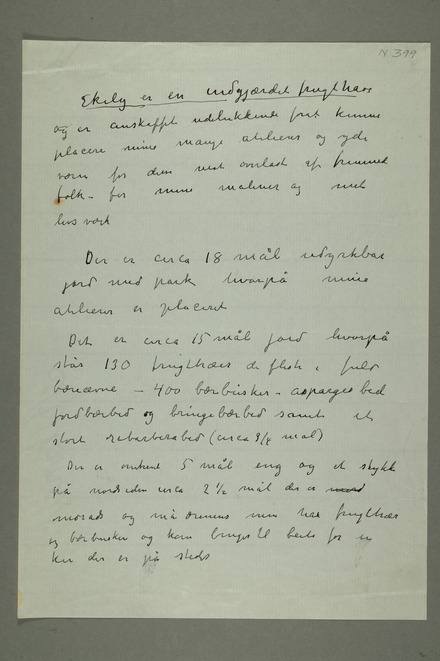 N 399
Ekely er en indgjærdet frugthave
og er anskaffet udelukkende forat kunne
placere mine mange atelierer og yde
værn for dem mod overlast af fremmed
folk – for mine malerier og mit
livsværk
Der er circa 18 mål udyrkbar
jord med park hvorpå mine
atelierer er placeret
Det er circa 15 mål jord hvorpå
står 130 frugttræer de fleste i fuld
bæreevne – 400 bærbusker – aspargesbed
jordbærbed og bringebærbed samt et
stort rabarbrabed (circa 3/4 mål)
Der er omtrent 5 mål eng og et stykke
på nordsiden circa 2 1/2 mål der er
morads og må drænes men har frugttrær
og bærbusker og kan bruges til beite for en
ku der er på stedet